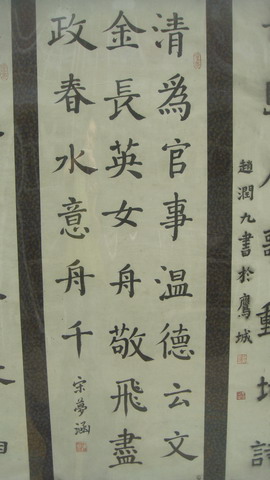 趙潤九書於鷹城
清爲官事温德云文
金長英女舟敬飛盡
政春水意舟千
宋夢涵